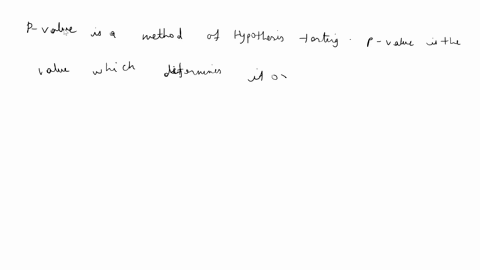 P-value is a method of Hypothesis testing. P-value is the
value which determines if